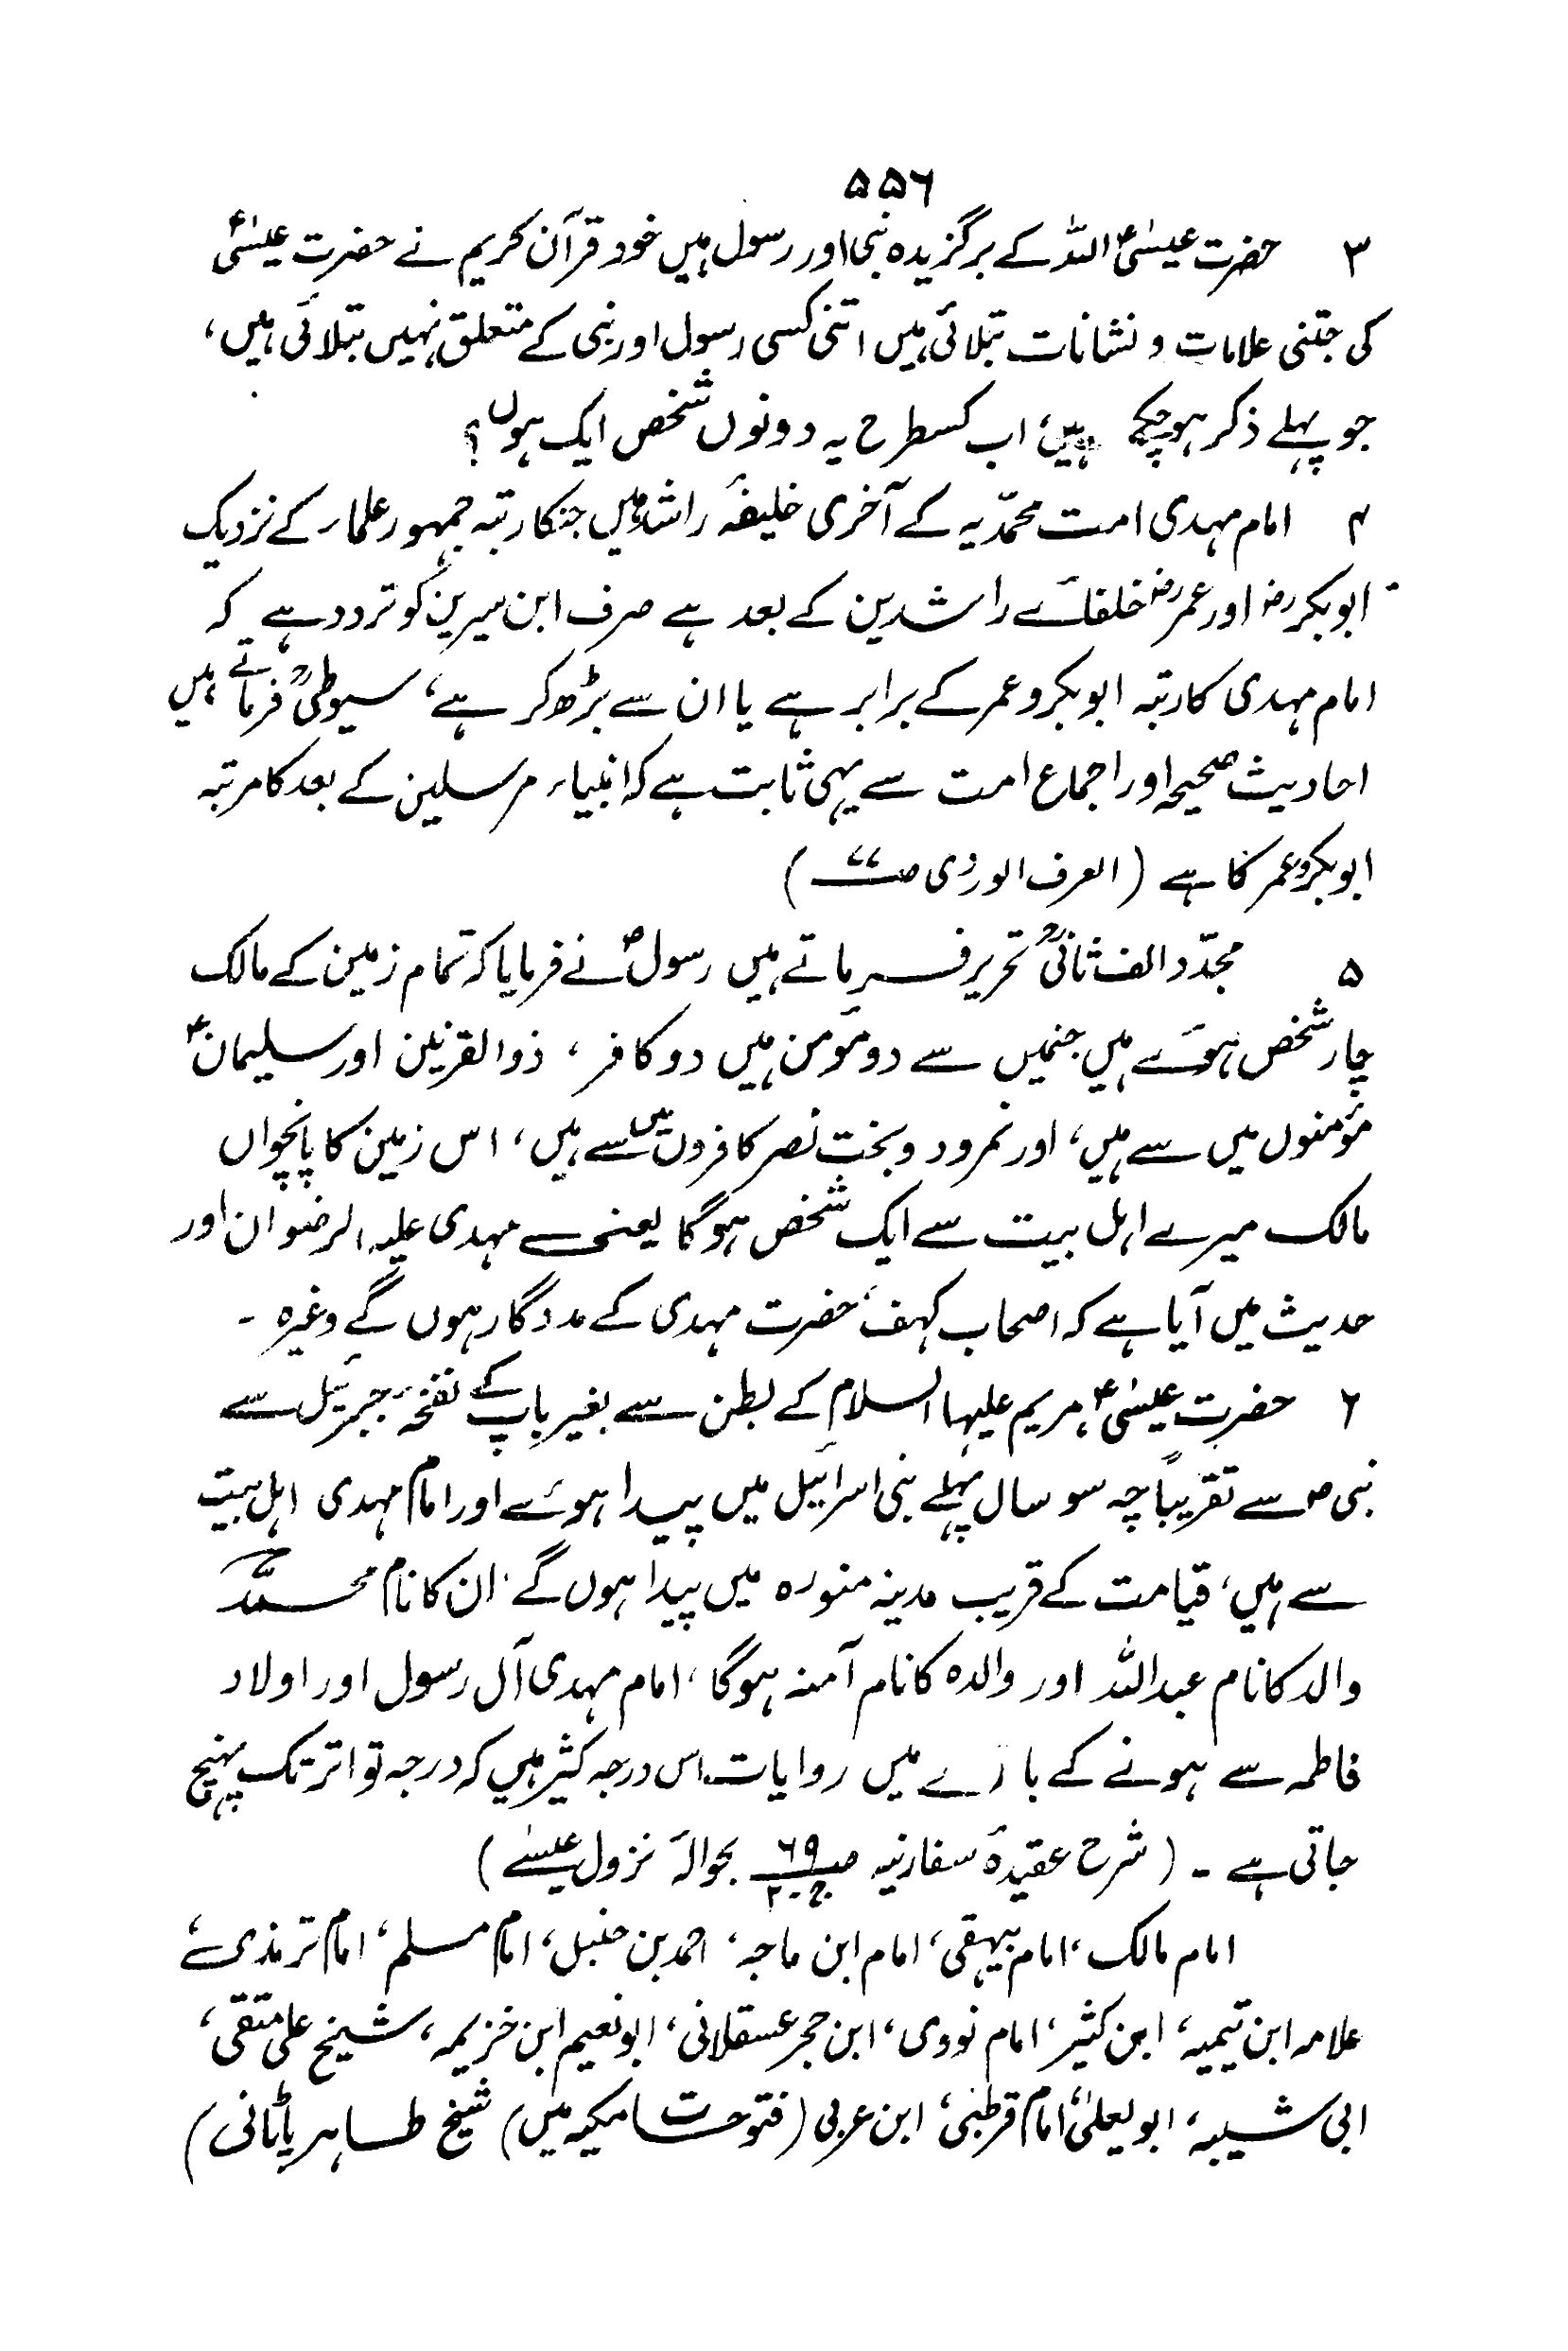 ۵۵۶
۳ حضرت عیسیٰؑ اللہ کے برگزیدہ نبی اور رسول ہیں خود قرآن کریم نے حضرت عیسیٰؑ
کی جتنی علامات و نشانات بتلائی ہیں اتنی کسی رسول اور نبی کے متعلق نہیں بتلائی ہیں،
جو پہلے ذکر ہوچکے ہیں، اب کسطرح یہ دونوں شخص ایک ہوں؟
۴ امام مہدی امت محمدّیہ کے آخری خلیفۂ راشد ہیں جنکا رتبہ جمہور علماء کے نزدیک
ابوبکررض اور عمررض خلفائے راشدین کے بعد ہے صرف ابن سیرین کو تردد ہے کہ
امام مہدی کا رتبہ ابوبکر و عمر کے برابر ہے یا ان سے بڑھ کر ہے، سیوطیؒ فرماتے ہیں
احادیث صحیحہ اور اجماع امت سے یہی ثابت ہے کہ انبیاء مرسلین کے بعد کا مرتبہ
ابوبکر و عمر کا ہے (العرف الوردی صـ ۷۷)
۵ مجدّد الف ثانیؒ تحریر فرماتے ہیں رسولؐ نے فرمایا کہ تمام زمین کے مالک
چار شخص ہوئے ہیں جنمیں سے دو مؤمن ہیں دو کافر، ذوالقرنین اور سلیمانؑ
مؤمنوں میں سے ہیں، اور نمرود و بخت نصر کافروں میں سے ہیں، اس زمین کا پانچواں
مالک میرے اہل بیت سے ایک شخص ہوگا یعنے مہدی علیہ الرضوان اور
حدیث میں آیا ہے کہ اصحاب کہف، حضرت مہدی کے مددگار ہوں گے وغیرہ ۔
۶ حضرت عیسیٰؑ، مریم علیہا السلام کے بطن سے بغیر باپ کے نفخۂ جبرئیل سے
نبی ص سے تقریباً چھ سو سال پہلے بنی اسرائیل میں پیدا ہوئے اور امام مہدی اہل بیت
سے ہیں، قیامت کے قریب مدینہ منورہ میں پیدا ہوں گے، ان کا نام محمّد
والد کا نام عبداللہ اور والدہ کا نام آمنہ ہوگا، امام مہدی آل رسول اور اولاد
فاطمہ سے ہونے کے بارے میں روایات اس درجہ کثیر ہیں کہ درجہ تواتر تک پہنچ
جاتی ہے ۔ (شرح عقیدۂ سفارنیہ صـ ۶۹ ج۔۲ بحوالۂ نزول عیسےٰ)
امام مالک، امام بیہقی، امام ابن ماجہ، احمد بن حنبل، امام مسلم، امام ترمذی،
علامہ ابن تیمیہ، ابن کثیر، امام نووی، ابن حجر عسقلانی، ابونعیم ابن خزیمہ، شیخ علی متقی،
ابی شیبہ، ابو یعلیٰ، امام قرطبی، ابن عربی (فتوحات مکیہ میں) شیخ طاہر پاٹانی)